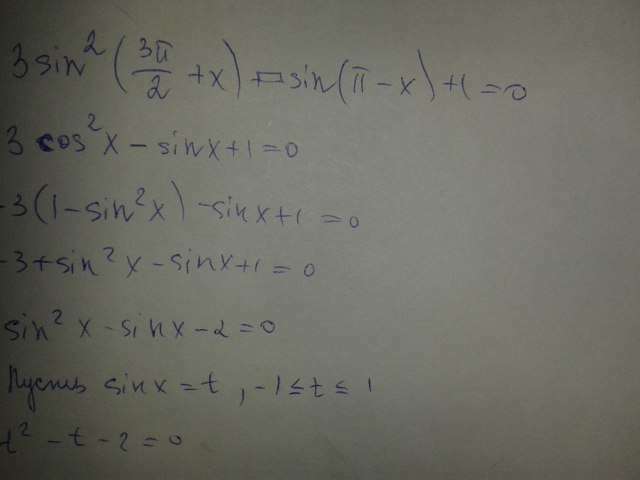 3 sin² (3π/2 + x) - sin(π - x) + 1 = 0
3 cos² x - sin x + 1 = 0
-3(1 - sin² x) - sin x + 1 = 0
-3 + sin² x - sin x + 1 = 0
sin² x - sin x - 2 = 0
Пусть sin x = t, -1 ≤ t ≤ 1
t² - t - 2 = 0